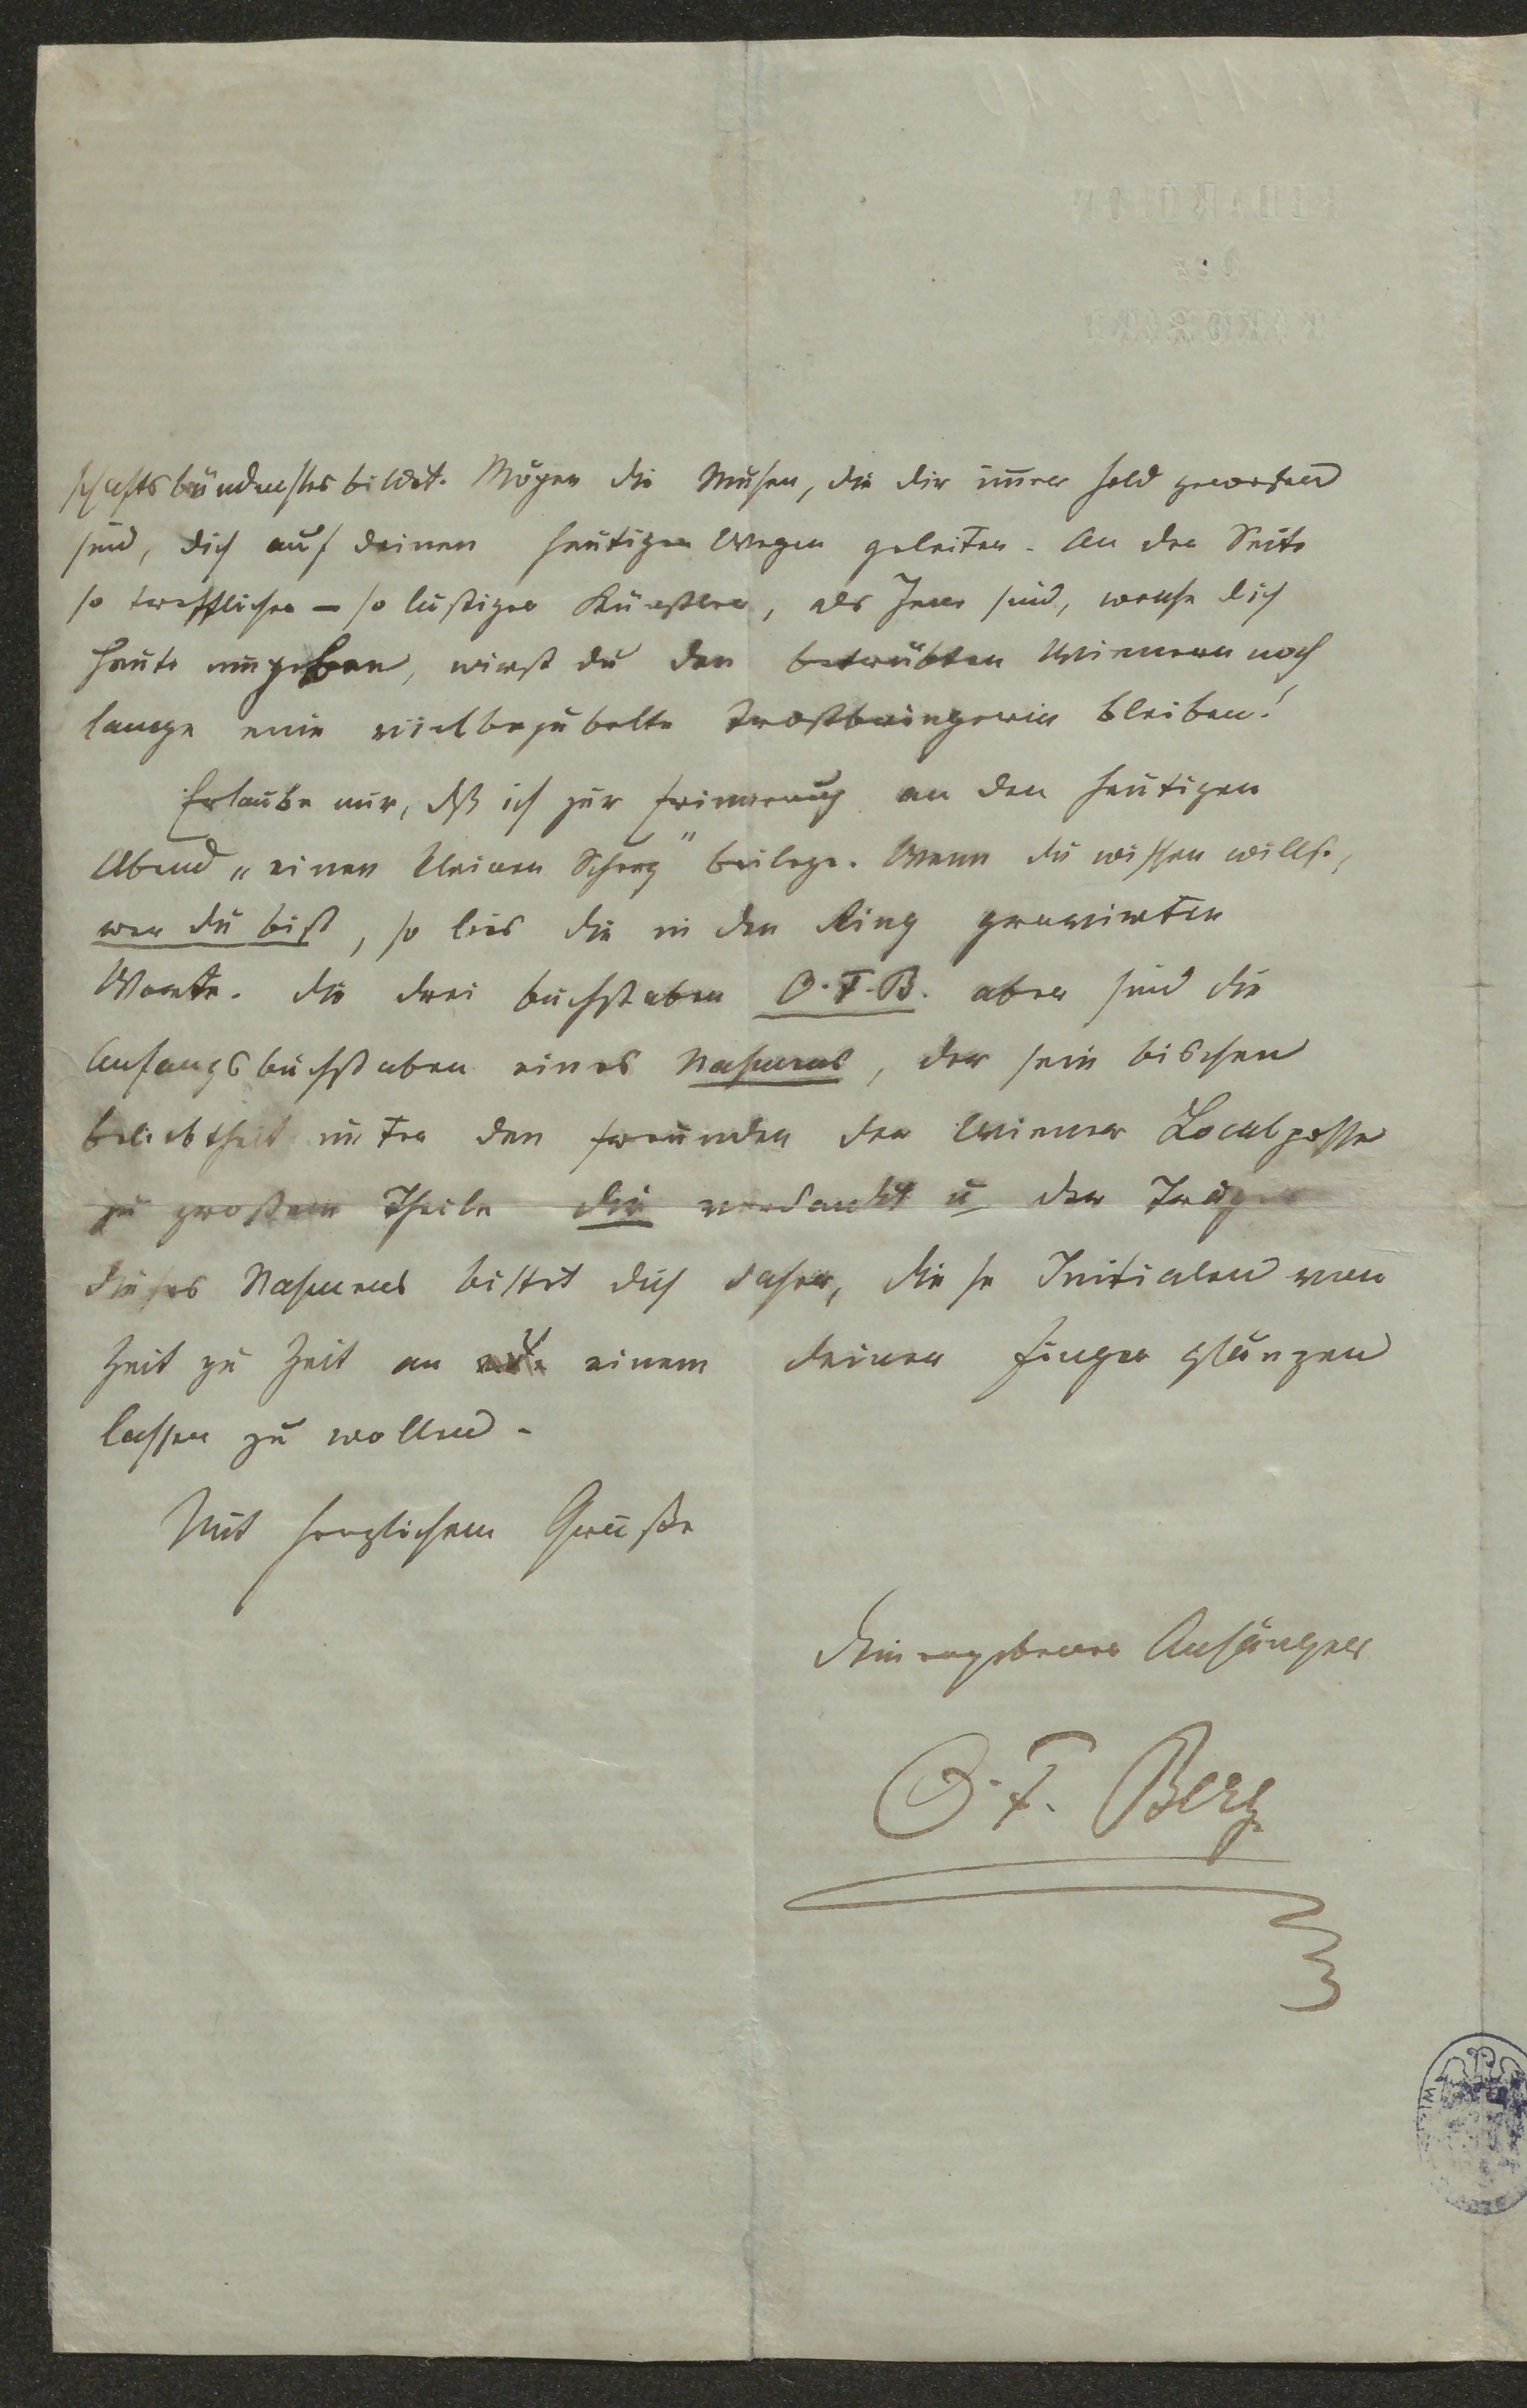 schaftsbündnisses bildet. Mögen die Musen, die dir im̅er hold gewesen
sind, dich auf deinen heutigen Wegen geleiten. An der Seite
so trefflicher – so lustiger Künstler, als Jene sind, welche dich
heute umgeben, wirst du den betrübten Wienern noch
lange eine vielbejubelte Trostbringerin bleiben!
Erlaube mir, dß ich zur Erinnerung an den heutigen
Abend „einen kleinen Scherz" beilege. Wenn du wissen willst,
wer du bist, so lies die in den Ring gravirten
Worte. Die drei Buchstaben O. F. B. aber sind die
Anfangsbuchstaben eines Nahmens, der sein bischen
Beliebtheit unter den Freunden der Wiener Localposse
zu großem Theile dir verdankt u der Träger
dieses Nahmens bittet dich daher, diese Initialen von
Zeit zu Zeit an einem deiner Finger glänzen
lassen zu wollen.
Mit herzlichem Gruße
Dein ergebener Anhänger
O. F. Berg